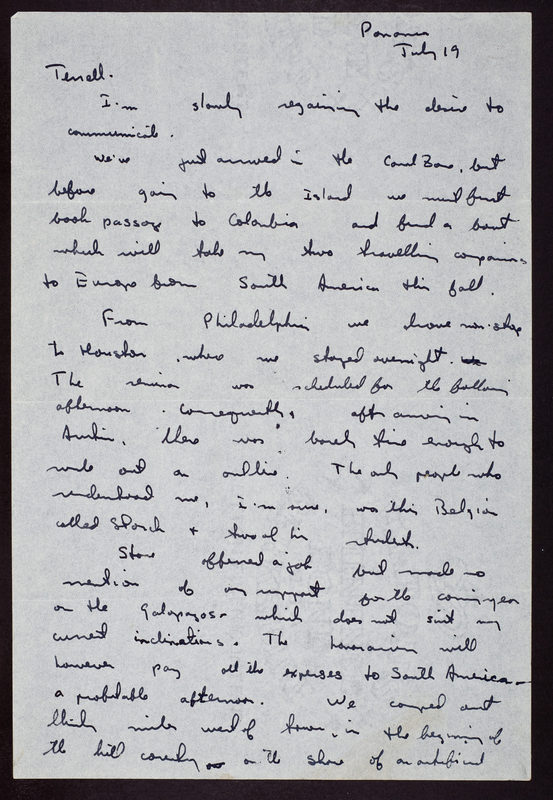 Panama
July 19
Terrell.
I'm slowly regaining the desire to
communicate.
We've just arrived in the Canal Zone, but
before going to the Island we must first
book passage to Colombia and find a boat
which will take my two travelling companions
to Europe from South America this fall.
From Philadelphia we drove non-stop
to Houston, where we stayed overnight.
The seminar was scheduled for the following
afternoon. Consequently, after arriving in
Austin, there was barely time enough to
write out an outline. The only people who
understood me, I'm sure, was this Belgian
called & two of his students.
Stone offered a job but made no
mention of any support for the coming year
on the Galapagos - which does not suit my
current inclinations. The honorarium will
however pay all the expenses to South America -
a profitable afternoon. We camped out
thirty miles west of town, in the beginning of
the hill country on the shore of an artificial